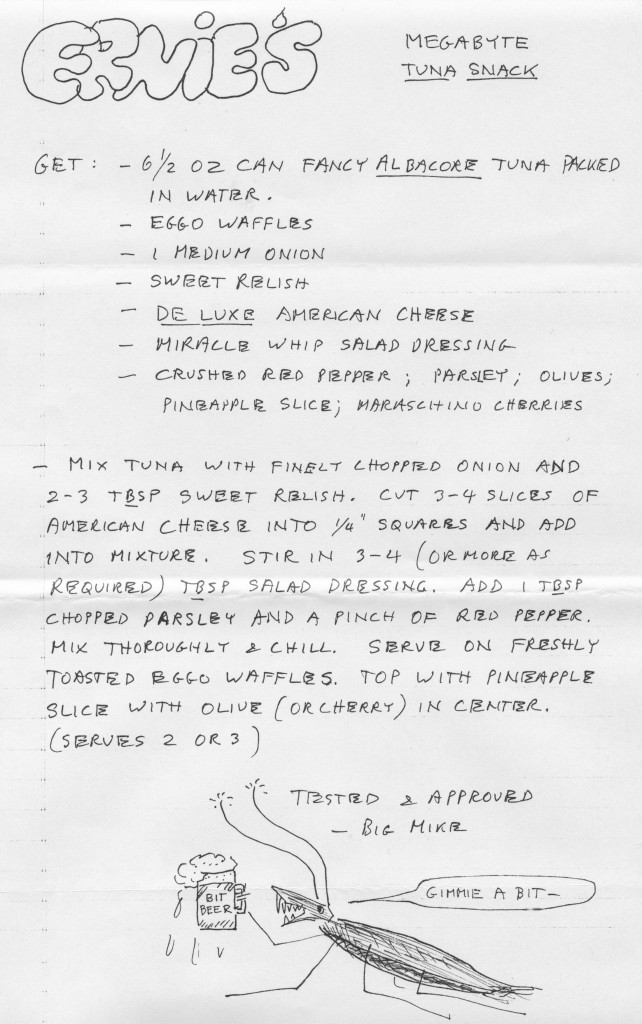 ERNIE'S
MEGABYTE
TUNA SNACK
GET : - 6 1/2 OZ CAN FANCY ALBACORE TUNA PACKED
IN WATER.
- EGGO WAFFLES
- 1 MEDIUM ONION
- SWEET RELISH
- DE LUXE AMERICAN CHEESE
- MIRACLE WHIP SALAD DRESSING
- CRUSHED RED PEPPER ; PARSLEY ; OLIVES;
PINEAPPLE SLICE; MARASCHINO CHERRIES
- MIX TUNA WITH FINELY CHOPPED ONION AND
2-3 TBSP SWEET RELISH. CUT 3-4 SLICES OF
AMERICAN CHEESE INTO 1/4" SQUARES AND ADD
INTO MIXTURE. STIR IN 3-4 (OR MORE AS
REQUIRED) TBSP SALAD DRESSING. ADD 1 TBSP
CHOPPED PARSLEY AND A PINCH OF RED PEPPER.
MIX THOROUGHLY & CHILL. SERVE ON FRESHLY
TOASTED EGGO WAFFLES. TOP WITH PINEAPPLE
SLICE WITH OLIVE (OR CHERRY) IN CENTER.
(SERVES 2 OR 3)
TESTED & APPROVED
- BIG MIKE
GIMMIE A BIT-
BIT
BEER